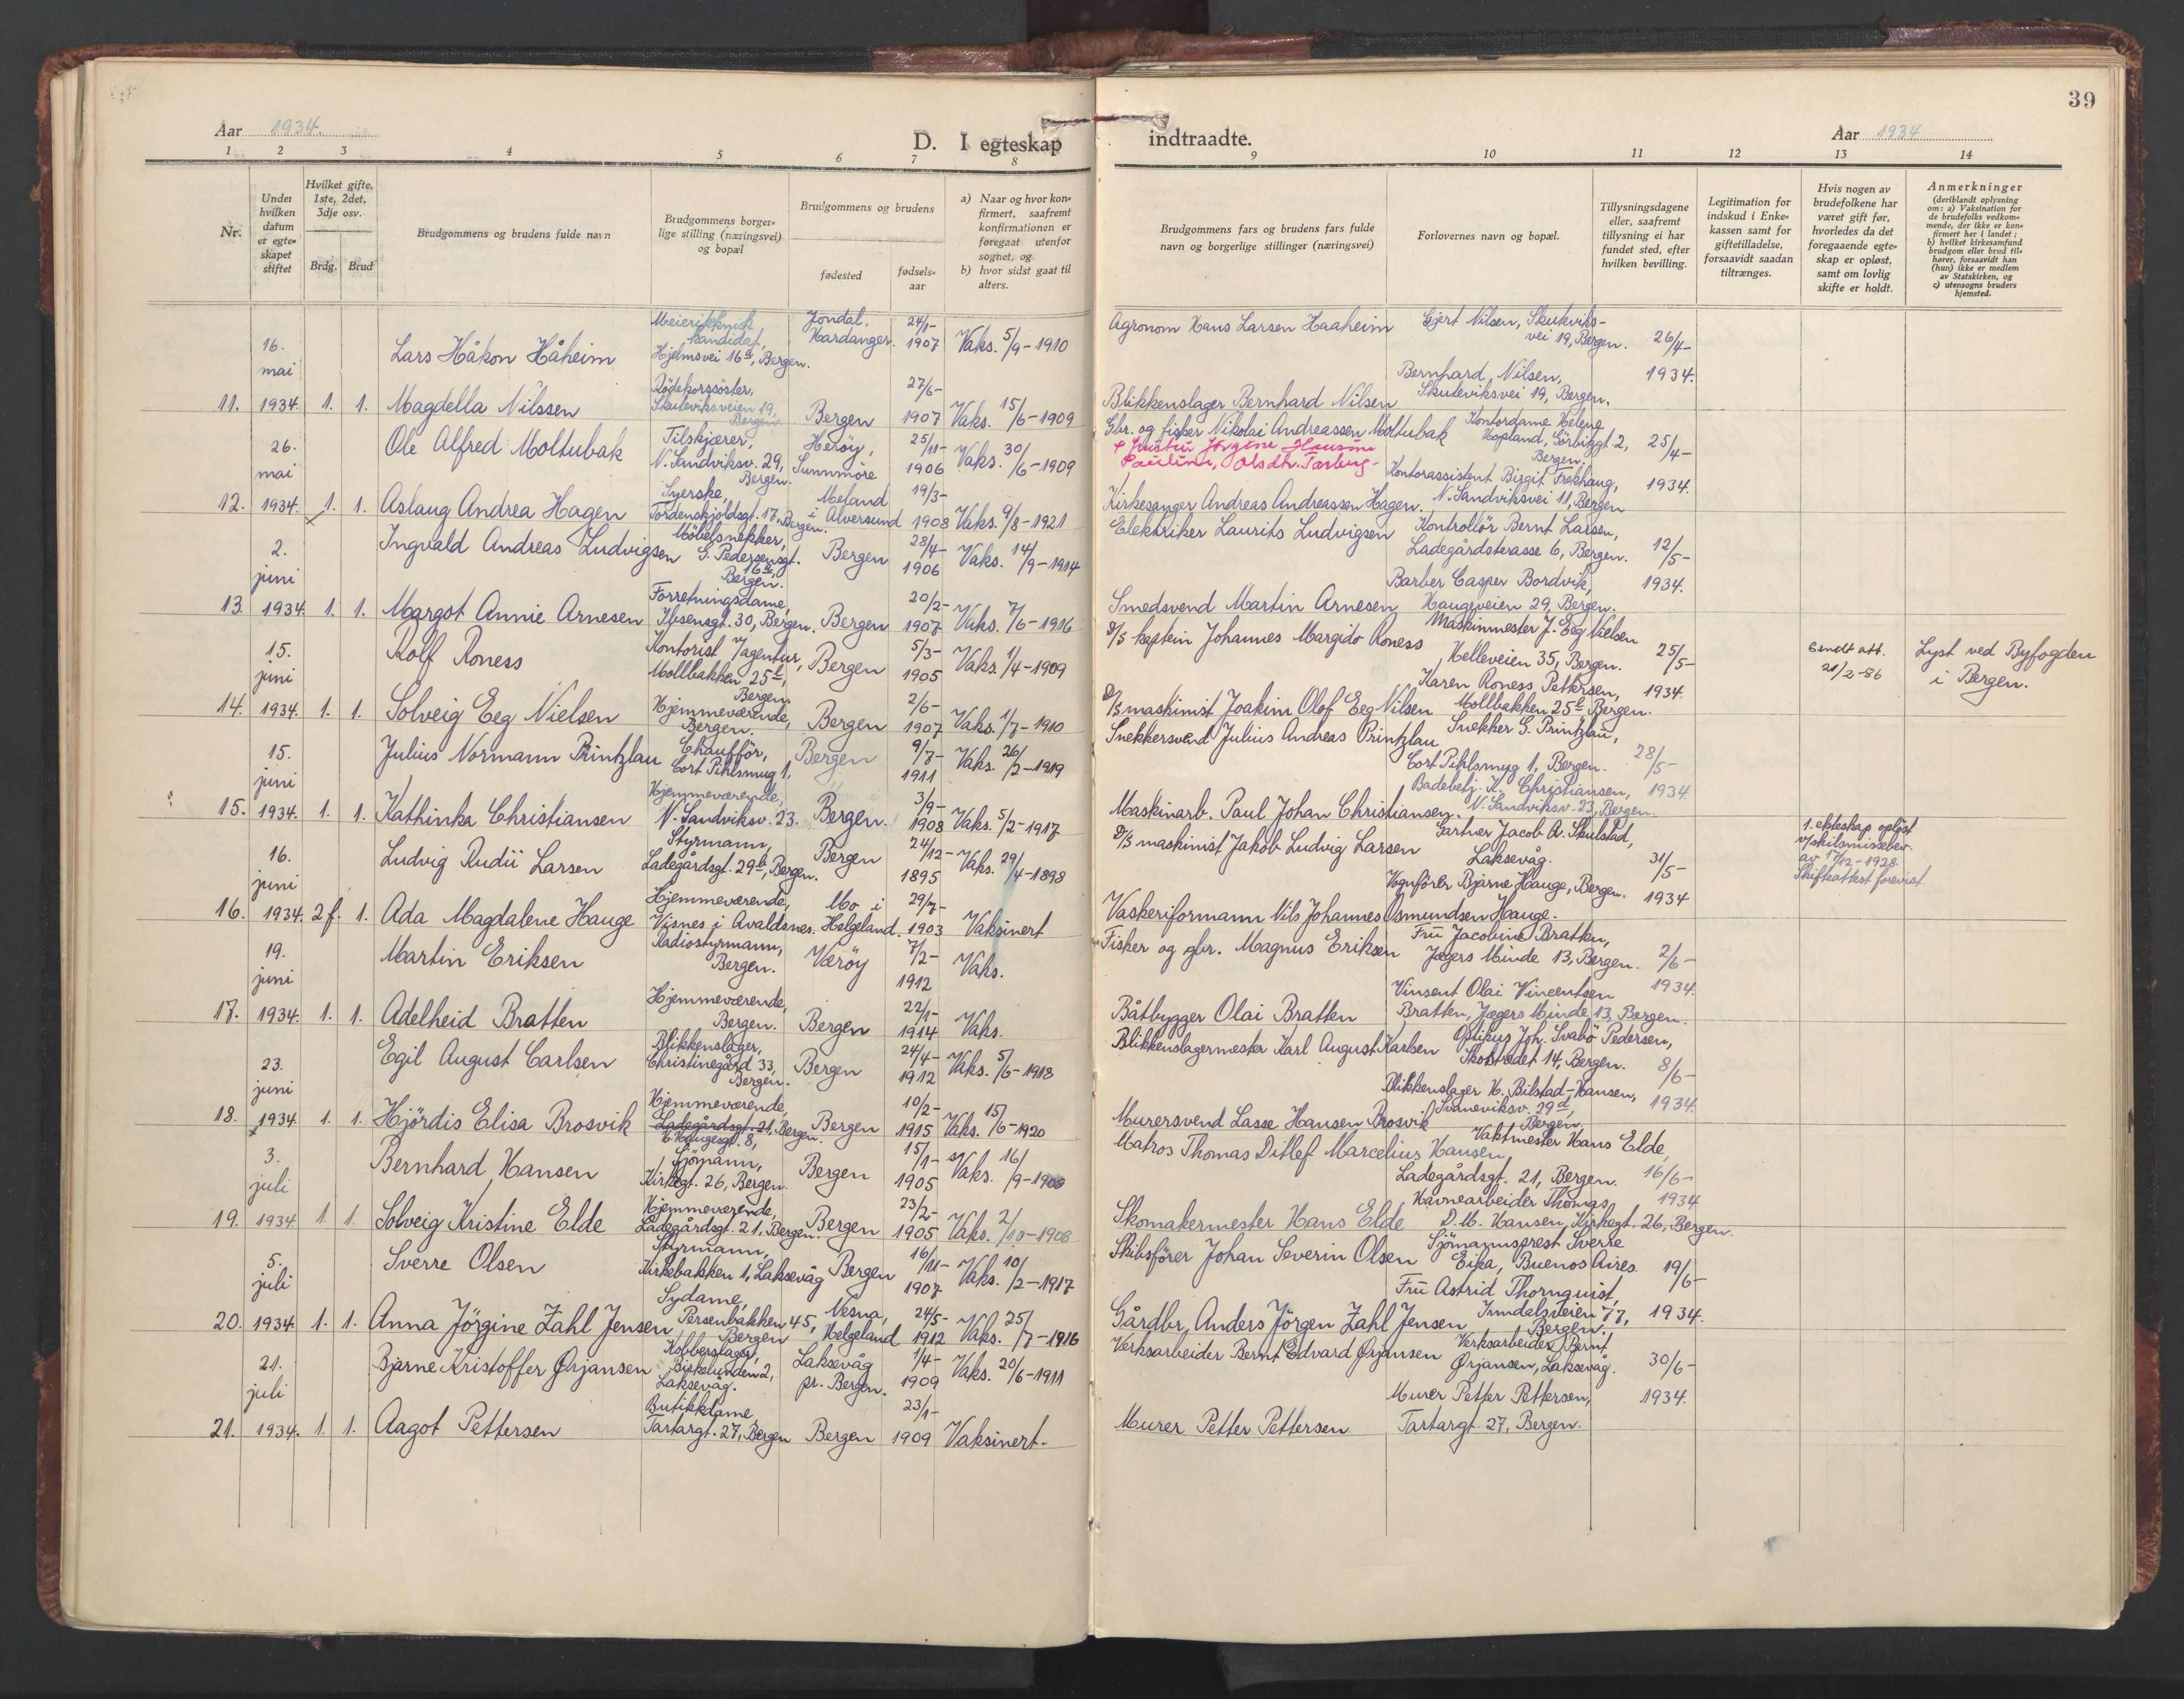 39
Aar 1934.
D. I egteskap indtraadte.
Aar 1934
1 2 3 4 5 6 7 8 9 10 11 12 13 14
Nr.
Under hvilken datum er egteskapet stiftet
Hvilket gifte, 1ste, 2det, 3dje osv.
Brdg. Brud
Brudgommens og brudens fulde navn
Brudgommens borgerlige stilling (næringsvei) og bopæl
Brudgommens og brudens
fødested
fødselsaar
a) Naar og hvor konfirmert, saafremt konfirmationen er foregaat utenfor sognet, og
b) hvor sidst gaat til alters.
Brudgommens fars og brudens fars fulde navn og borgerlige stillinger (næringsvei)
Forlovernes navn og bopæl.
Tillysningsdagene eller, saafremt tillysning ei har fundet sted, efter hvilken bevilling.
Legitimation for indskud i Enkekassen samt for giftetilladelse, forsaavidt saadan tiltrænges.
Hvis nogen av brudefolkene har været gift før, hvorledes da det foregaaende egteskap er opløst, samt om lovlig skifte er holdt.
Anmerkninger
(deriblandt oplysning om: a) Vaksination for de brudefolks vedkommende, der ikke er konfirmert her i landet; b) hvilket kirkesamfund brudgom eller brud tilhører, forsaavidt han (hun) ikke er medlem av Statskirken, og c) utensogns bruders hjemsted.
11. 16. mai 1934. 1. 1.
Lars Håkon Håheim Meieriteknisk kandidat, Hjelmsvei 16a, Bergen. Jondal, Hardanger. 24/1-1907 Vaks. 5/9-1910 Agronom Hans Larsen Haaheim Gjert Nilsen, Skuteviksvei 19, Bergen. 26/4-1934.
Magdella Nilssen Rödekorssöster, Skuteviksveien 19, Bergen Bergen 27/6-1907 Vaks. 15/6-1909 Blikkenslager Bernhard Nilsen Bernhard Nilsen, Skuteviksvei 19, Bergen.
12. 26. mai 1934. 1. 1.
Ole Alfred Moltubak Tilskjærer, N. Sandviksv. 29, Bergen. Heröy, Sunnmöre 25/11-1906 Vaks. 30/6-1909 Gbr. og fisker Nikolai Andreassen Moltubak Kontordame Helene Hopland, Sörbizgt. 2, Bergen. 25/4-1934.
Jörgine Pauline, Olsdtr.
Aslaug Andrea Hagen Syerske, Tordenskjoldsgt. 17, Bergen. Meland i Alversund 19/3-1908 Vaks. 9/8-1921 Kirkesanger Andreas Andreassen Hagen. Kontorassistent Birgit Frekhaug, N. Sandviksvei 11, Bergen
13. 2. juni 1934. 1. 1.
Ingvald Andreas Ludvigsen Möbelsnekker, G. Pedersensgt. 16a, Bergen. Bergen 28/4-1906 Vaks. 14/9-1914 Elektriker Laurits Ludvigsen Kontrollör Bernt Larsen, Ladegårdsterasse 6, Bergen. 12/5-1934.
Margot Annie Arnesen Forretningsdame, Ibsensgt. 30, Bergen. Bergen 20/2-1907 Vaks. 7/6-1916 Smedsvend Martin Arnesen Barber Casper Bordvik, Haugeveien 29, Bergen.
14. 15. juni 1934. 1. 1.
Rolf Roness Kontorist i/agentur, Mollbakken 25b, Bergen. Bergen 5/3-1905 Vaks. 1/4-1909 D/S kaptein Johannes Margido Roness Maskinmester J. Eeg Nielsen Helleveien 35, Bergen. 25/5-1934. Sendt att. 21/2-86 Lyst ved Byfogden i Bergen.
Solveig Eeg Nielsen Hjemmeværende, Bergen. Bergen 2/6-1907 Vaks. 1/7-1910 D/S maskinist Joakim Olof Eeg Nilsen Karen Roness Pettersen, Mollbakken 25b Bergen.
15. 15. juni 1934. 1. 1.
Julius Normann Printzlau Chaufför, Cort Pihlsmug 1, Bergen 9/7-1911 Vaks. 26/2-1919 Snekkersvend Julius Andreas Printzlau Snekker G. Printzlau, Cort Pihlsmug 1, Bergen. 28/5-1934
Kathinka Christiansen Hjemmeværende, N. Sandviksv. 23. Bergen. 3/9-1908 Vaks. 5/2-1917 Maskinarb. Paul Johan Christiansen. Badebetj. K. Christiansen, N. Sandviksv. 23, Bergen.
16. 16. juni 1934. 2 f. 1.
Ludvig Rudii Larsen Styrmann, Ladegårdsgt. 29b, Bergen. Bergen 24/12-1895 Vaks. 29/4-1898 D/S maskinist Jakob Ludvig Larsen Gartner Jacob A. Skulstad, Laksevåg. 31/5-1934 1. ekteskap oplöst v/skilsmissebev. av 17/12-1928 Skifteattest forevist.
Ada Magdalene Hauge Hjemmeværende, Visnes i Avaldsnes. Mo i Helgeland. 29/7-1903 Vaksinert Vaskeriformann Nils Johannes Osmundsen Hauge. Vognförer Bjarne Hauge, Bergen.
17. 19. juni 1934. 1. 1.
Martin Eriksen Radiostyrmann, Bergen. Væröy 7/2-1912 Vaks. Fisker og gbr. Magnus Eriksen Frü Jacobine Bratten, Jægers Minde 13, Bergen. 2/6-1934.
Adelheid Bratten Hjemmeværende, Bergen. Bergen 22/1-1914 Vaks. Båtbygger Olai Bratten Vinsent Olai Vincentsen Bratten, Jægers Minde 13, Bergen.
18. 23. juni 1934 1. 1.
Egil August Carlsen Blikkenslager, Christinegård 33, Bergen. Bergen 24/4-1912 Vaks. 5/6-1918 Blikkenslagermester Karl August Karlsen Optikus Joh. Svabö Pedersen, Skostredet 14, Bergen. 8/6-1934
Hjördis Elisa Brosvik Hjemmeværende, Ladegårdsgt. 21, Bergen. H. Haugesgt. 8, Bergen 10/2-1915 Vaks. 15/6-1920 Murersvend Lasse Hansen Brosvik Blikkenslager H. Bilstad-Hansen, Svaneviksv. 29d, Bergen.
19. 3. juli 1934 1. 1.
Bernhard Hansen Sjömann, Kirkegt. 26, Bergen. Bergen 15/1-1905 Vaks. 16/9-1909 Matros Thomas Ditlef Marcelius Hansen Vaktmester Hans Elde, Ladegårdsgt. 21, Bergen. 16/6-1934
Solveig Kristine Elde Hjemmeværende, Ladegårdsgt. 21, Bergen. Bergen 23/2-1905 Vaks. 2/10-1908 Skomakermester Hans Elde Havnearbeider Thomas D. M. Hansen, Kirkegt. 26, Bergen.
20. 5. juli 1934 1. 1.
Sverre Olsen Styrmann, Kirkebakken 1, Laksevåg Bergen 16/11-1907 Vaks. 10/2-1917 Skibsförer Johan Severin Olsen Sjömannsprest Sverre Eika, Buenos Aires. 19/6-1934.
Anna Jörgine Zahl Jensen Sydame, Persenbakken 45, Bergen Nesna, Helgeland 24/5-1912 Vaks. 25/7-1916 Gårdbr. Anders Jörgen Zahl Jensen Frü Astrid Thornquist, Irmdalsveien 77, Bergen.
21. 21. juli 1934. 1. 1.
Bjarne Kristoffer Ørjansen Kobberslager, Birkelunden 2, Laksevåg. Laksevåg pr. Bergen. 1/4-1909 Vaks. 20/6-1911 Verksarbeider Bernt Edvard Ørjansen Verksarbeider Bernt Ørjansen, Laksevåg. 30/6-1934.
Aagot Pettersen Butikkdame Tartargt. 27, Bergen Bergen 23/1-1909 Vaksinert- Murer Petter Pettersen Murer Petter Pettersen, Tartargt. 27, Bergen.